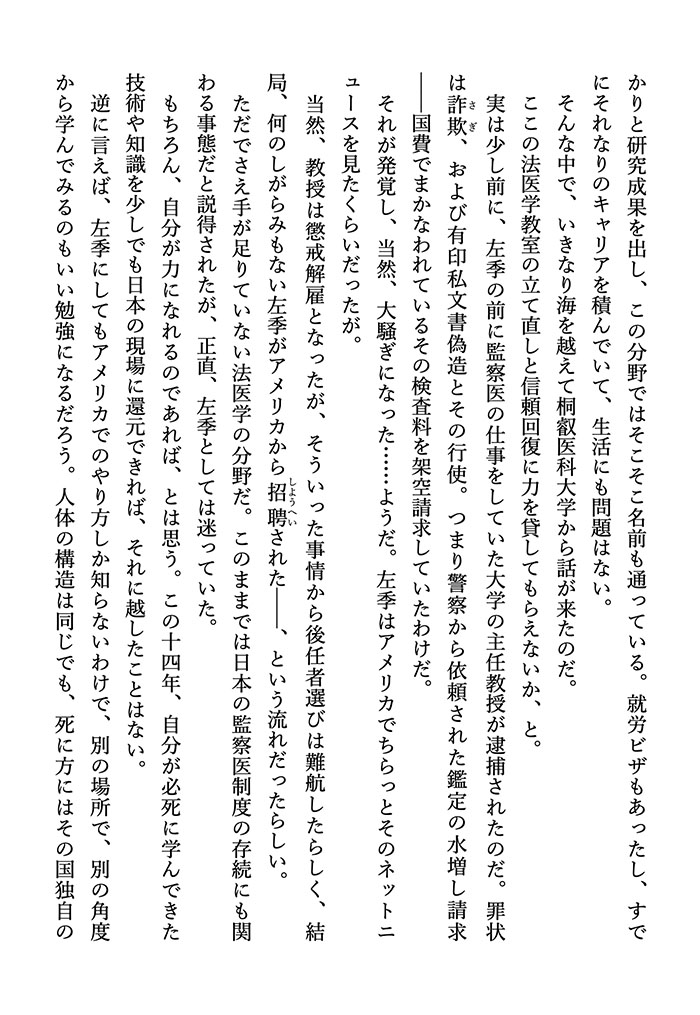 かりと研究成果を出し、この分野ではそこそこ名前も通っている。就労ビザもあったし、すで
にそれなりのキャリアを積んでいて、生活にも問題はない。
そんな中で、いきなり海を越えて桐叡医科大学から話が来たのだ。
ここの法医学教室の立て直しと信頼回復に力を貸してもらえないか、と。
実は少し前に、左季の前に監察医の仕事をしていた大学の主任教授が逮捕されたのだ。罪状
は詐欺、および有印私文書偽造とその行使。つまり警察から依頼された鑑定の水増し請求
さぎ
――国費でまかなわれているその検査料を架空請求していたわけだ。
それが発覚し、当然、大騒ぎになった……ようだ。左季はアメリカでちらっとそのネットニ
ュースを見たくらいだったが。
当然、教授は懲戒解雇となったが、そういった事情から後任者選びは難航したらしく、結
局、何のしがらみもない左季がアメリカから招聘された――、という流れだったらしい。
しょうへい
ただでさえ手が足りていない法医学の分野だ。このままでは日本の監察医制度の存続にも関
わる事態だと説得されたが、正直、左季としては迷っていた。
もちろん、自分が力になれるのであれば、とは思う。この十四年、自分が必死に学んできた
技術や知識を少しでも日本の現場に還元できれば、それに越したことはない。
逆に言えば、左季にしてもアメリカでのやり方しか知らないわけで、別の場所で、別の角度
から学んでみるのもいい勉強になるだろう。人体の構造は同じでも、死に方にはその国独自の